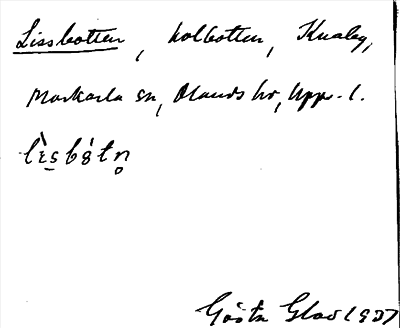 Lissbotten, kolbotten, Knaby,
Morkarla sn, Olands hd, Upps. l.
lìsbòtn̥
Gösta Glad 1937